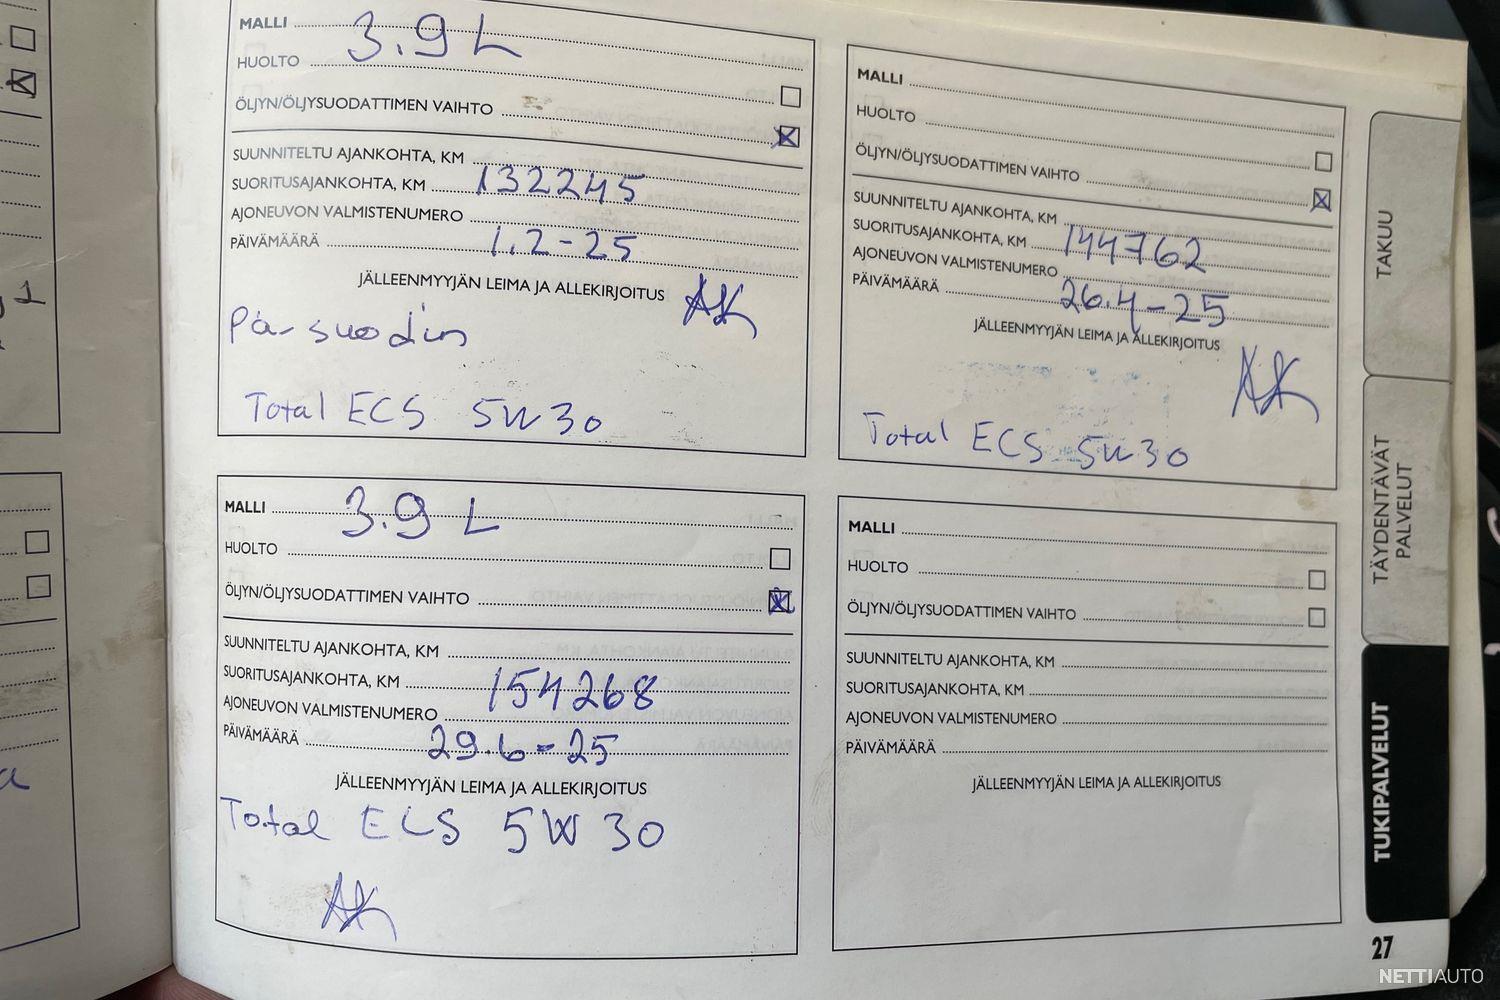 MALLI 3.9 L
HUOLTO
ÖLJYN/ÖLJYSUODATTIMEN VAIHTO
SUUNNITELTU AJANKOHTA, KM
SUORITUSAJANKOHTA, KM 132245
AJONEUVON VALMISTENUMERO
PÄIVÄMÄÄRÄ 1.2-25
JÄLLEENMYYJÄN LEIMA JA ALLEKIRJOITUS
AK
Pa-suodin
Total ECS 5W30
MALLI
HUOLTO
ÖLJYN/ÖLJYSUODATTIMEN VAIHTO
SUUNNITELTU AJANKOHTA, KM
SUORITUSAJANKOHTA, KM 144762
AJONEUVON VALMISTENUMERO
PÄIVÄMÄÄRÄ 26.4-25
JÄLLEENMYYJÄN LEIMA JA ALLEKIRJOITUS
AK
Total ECS 5W30
MALLI 3.9 L
HUOLTO
ÖLJYN/ÖLJYSUODATTIMEN VAIHTO
SUUNNITELTU AJANKOHTA, KM
SUORITUSAJANKOHTA, KM 154268
AJONEUVON VALMISTENUMERO
PÄIVÄMÄÄRÄ 29.6-25
JÄLLEENMYYJÄN LEIMA JA ALLEKIRJOITUS
Total ECS 5W30
AK
MALLI
HUOLTO
ÖLJYN/ÖLJYSUODATTIMEN VAIHTO
SUUNNITELTU AJANKOHTA, KM
SUORITUSAJANKOHTA, KM
AJONEUVON VALMISTENUMERO
PÄIVÄMÄÄRÄ
JÄLLEENMYYJÄN LEIMA JA ALLEKIRJOITUS
TAKUU
TÄYDENTÄVÄT
PALVELUT
TUKIPALVELUT
27
NETTIAUTO